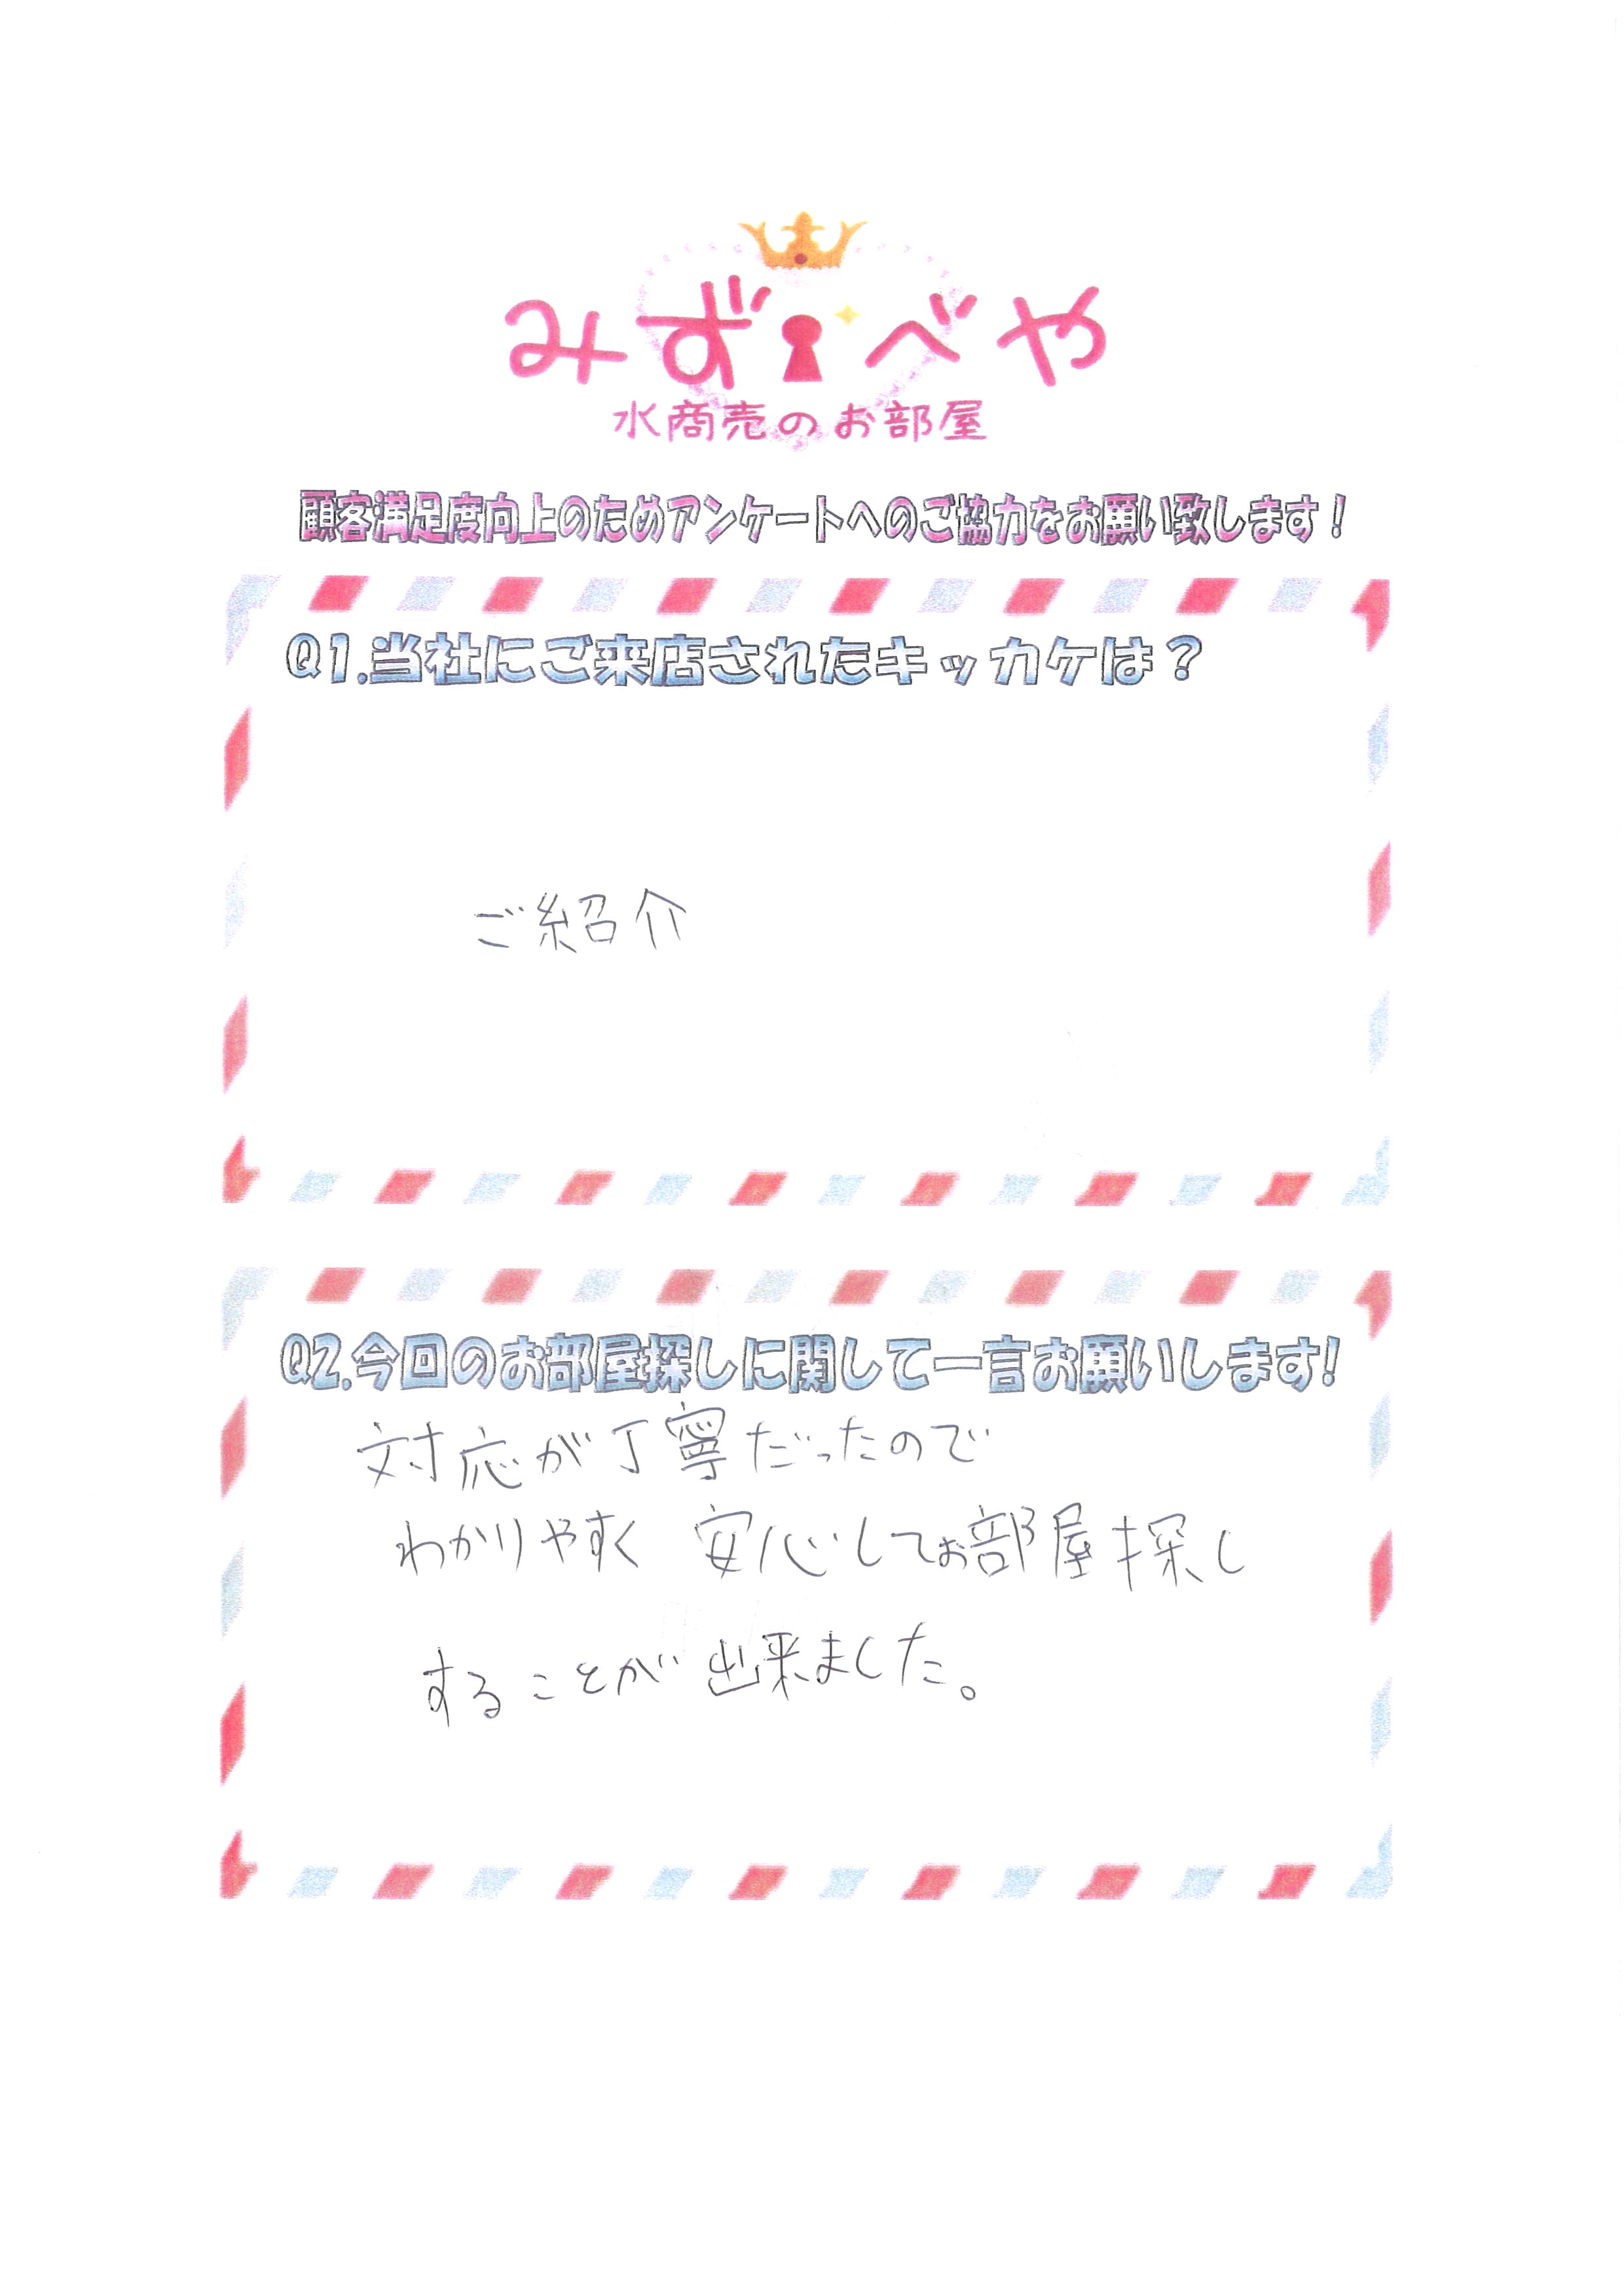 みずべや
水商売のお部屋
顧客満足度向上のためアンケートへのご協力をお願い致します！
Q1.当社にご来店されたキッカケは？
ご紹介
Q2.今回のお部屋探しに関して一言お願いします!
対応が丁寧だったので
わかりやすく 安心してお部屋探し
することが出来ました。